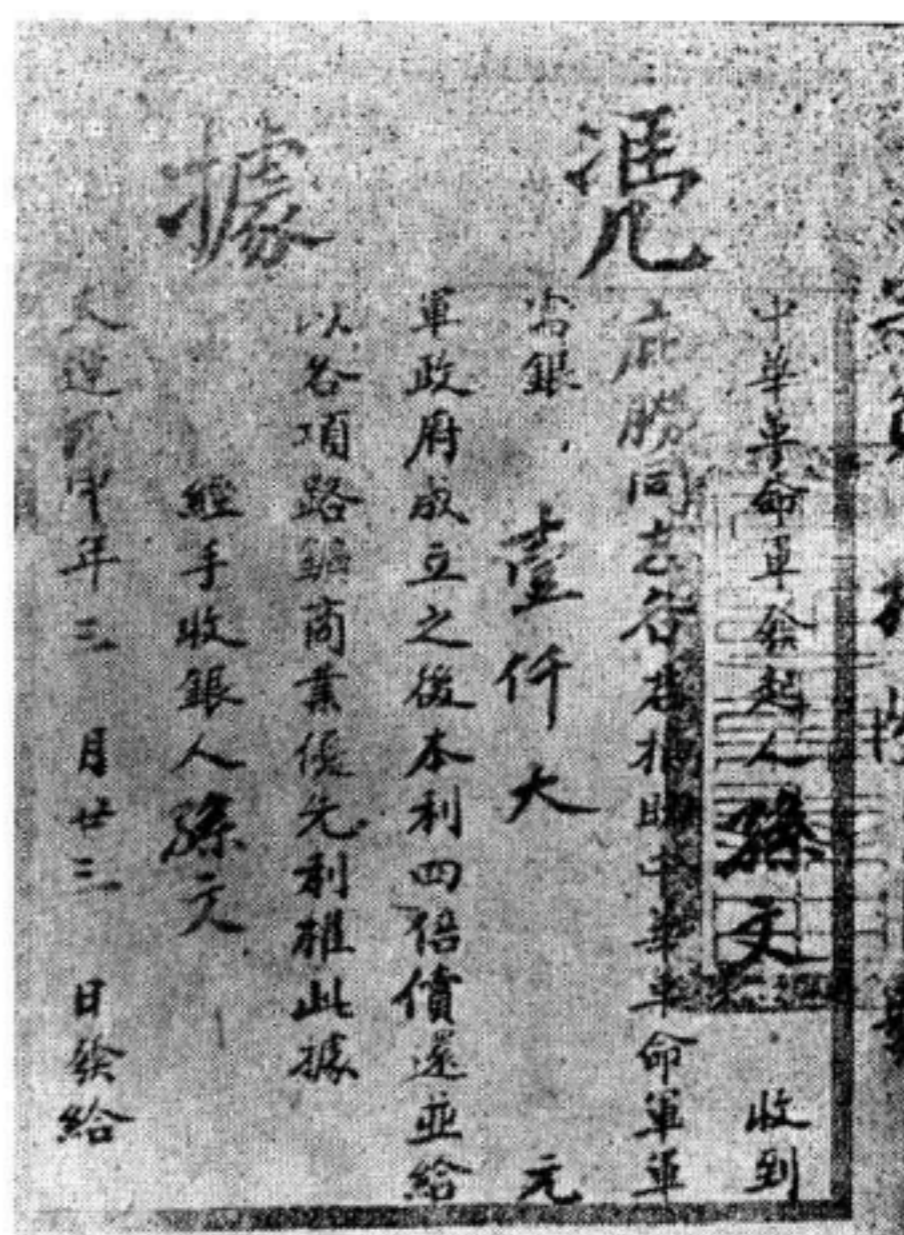 憑據
中華革命軍發起人孫文收到
庇勝同志各埠捐助中華革命軍軍
需銀壹仟大元
軍政府成立之後本利四倍償還並給
以各項路鑛商業優先利權此據
經手收銀人孫文
天運戊申年三月廿三日發給